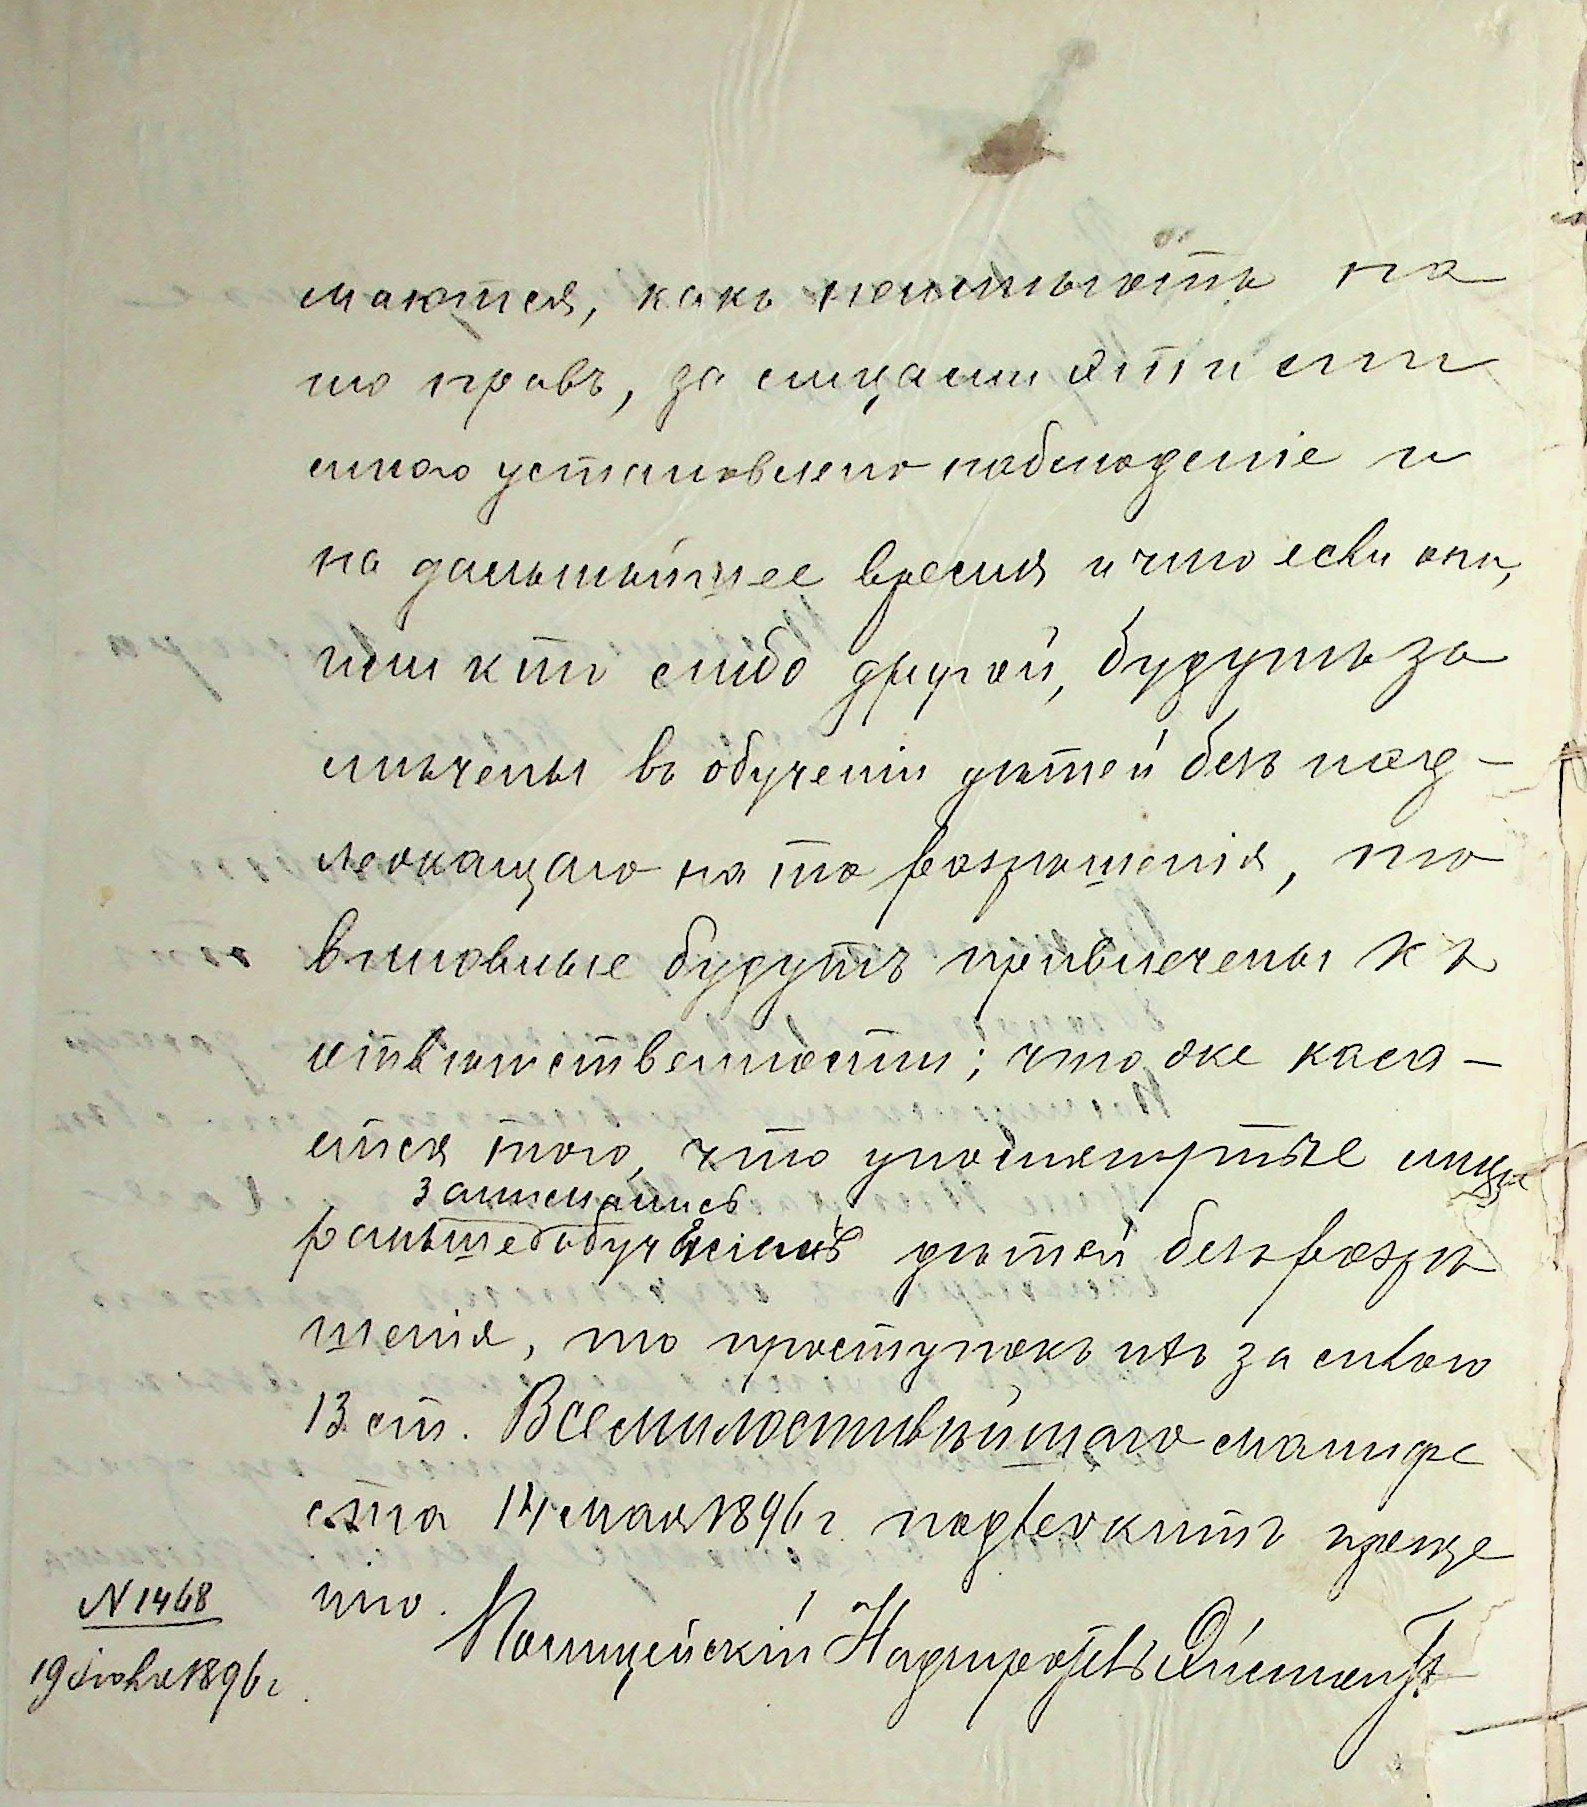 маются, какъ неимѣютъ на
то правъ, за лицами этими
мною установлено наблюденіе и
на дальнѣйшее время и что если они,
или кто либо другой, будутъ за
мѣчены въ обученіи дѣтей безъ над-
лежащаго на то разрѣшенія, то
виновные будутъ привлечены къ
отвѣтственности; что же каса-
ется того, что упомянутые лица
занимались
раньше обученіемъ дѣтей безъ разрѣ
шенія, то проступокъ ихъ за силою
13 ст. Всемилостивѣйшаго манифе
ста 14 мая 1896 г. подлежитъ проще
нію.
Полицейскій Надзиратель
N 1468
19 Іюля 1896 г.